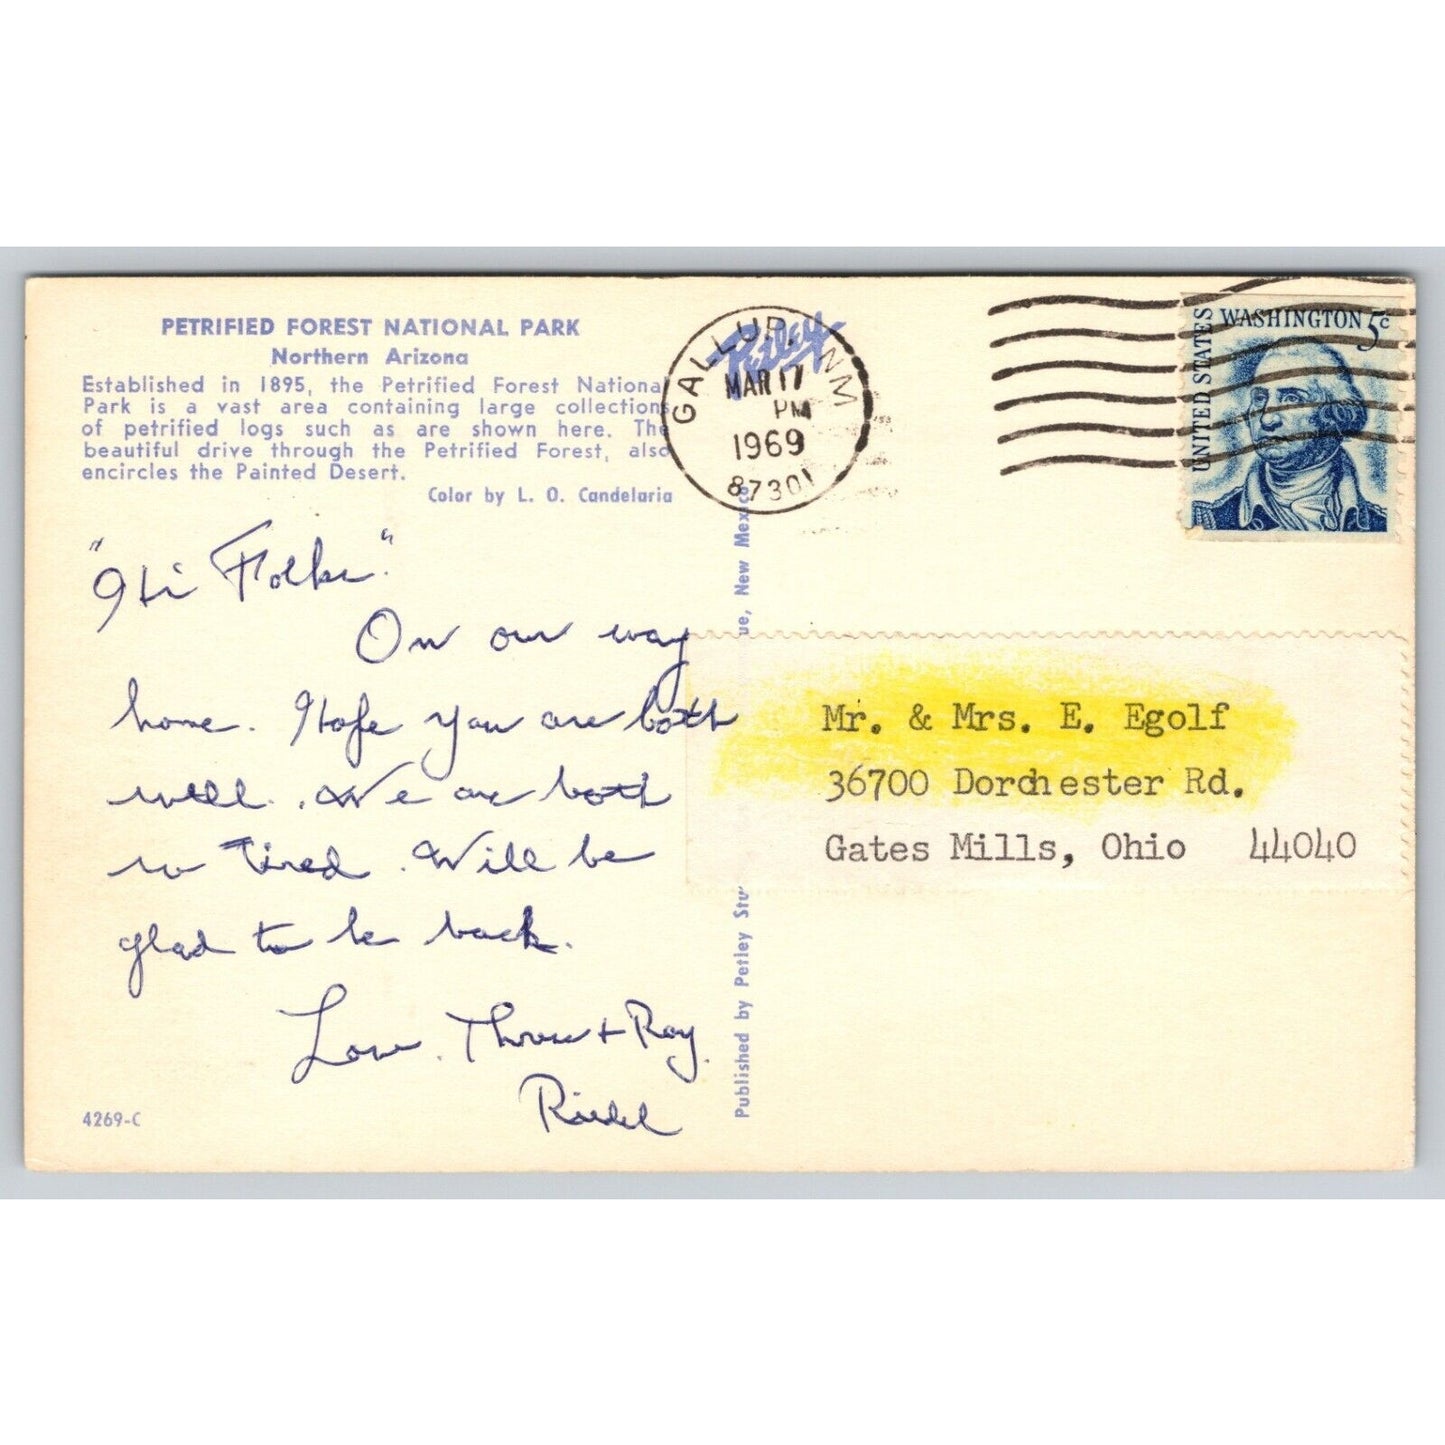 PETRIFIED FOREST NATIONAL PARK
Northern Arizona
Established in 1895, the Petrified Forest National
Park is a vast area containing large collections
of petrified logs such as are shown here. The
beautiful drive through the Petrified Forest, also
encircles the Painted Desert.
Color by L. O. Candelaria
"Hi Folks."
On our way
home. Hope you are both
well. We are both
so tired. Will be
glad to be back.
Love. & Roy.
4269-C
Petley
GALLUP, NM
MAR 17
PM
1969
87301
Published by Petley Stu
ue, New Mexico
UNITED STATES
WASHINGTON 5c
Mr. & Mrs. E. Egolf
36700 Dorchester Rd.
Gates Mills, Ohio 44040